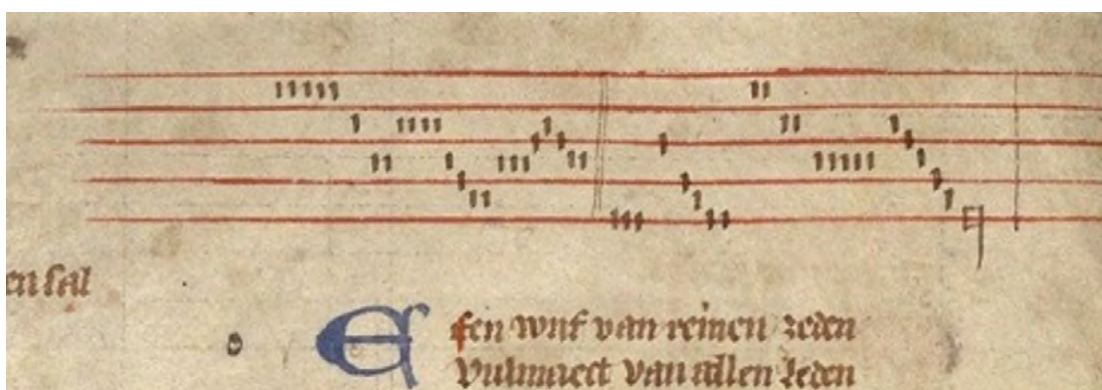 en sal
Een wijf van reinen zeden
vulmaect van allen leden